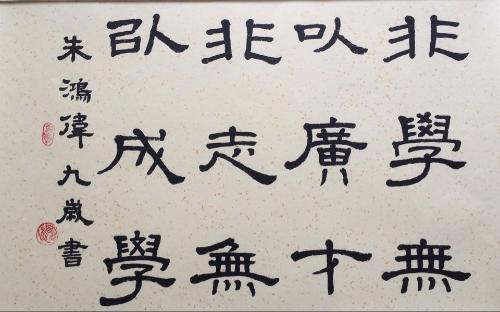 非學無
以廣才
非志無
以成學
朱鴻偉九歲書